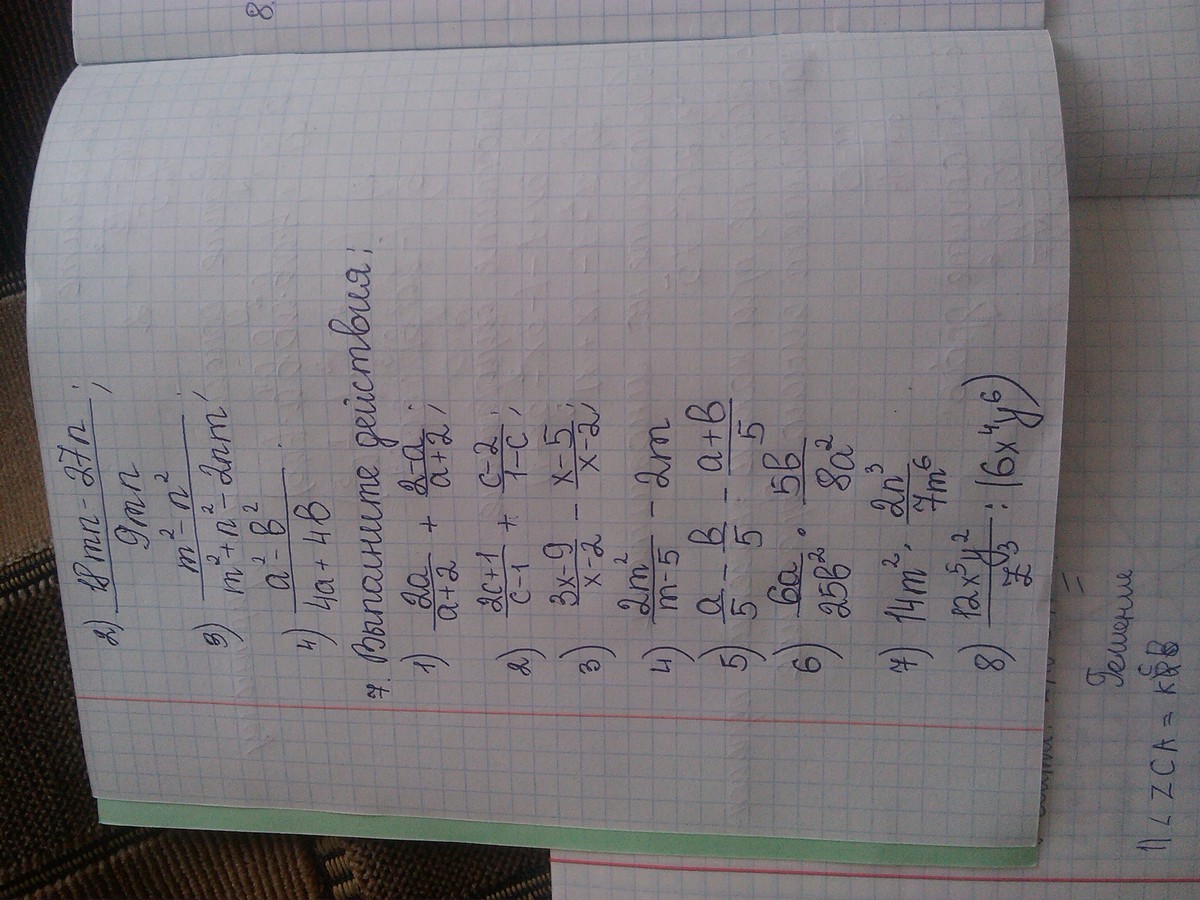 8.
2) (18mn - 27n)/(9mn);
3) (m² - n²)/(m² + n² - 2nm);
4) (a² - b²)/(4a + 4b).
7. Выполните действия:
1) 2a/(a+2) + (2-a)/(a+2);
2) (2c+1)/(c-1) + (c-2)/(1-c);
3) (3x-9)/(x-2) - (x-5)/(x-2);
4) 2m²/(m-5) - 2m
5) a/5 - b/5 - (a+b)/5
6) 6a/25b² · 5b/8a²
7) 14m² · 2n³/7m⁶
8) 12x⁵y²/z³ : (6x⁴y⁶)
=
Решение
1) ∠ZCA =